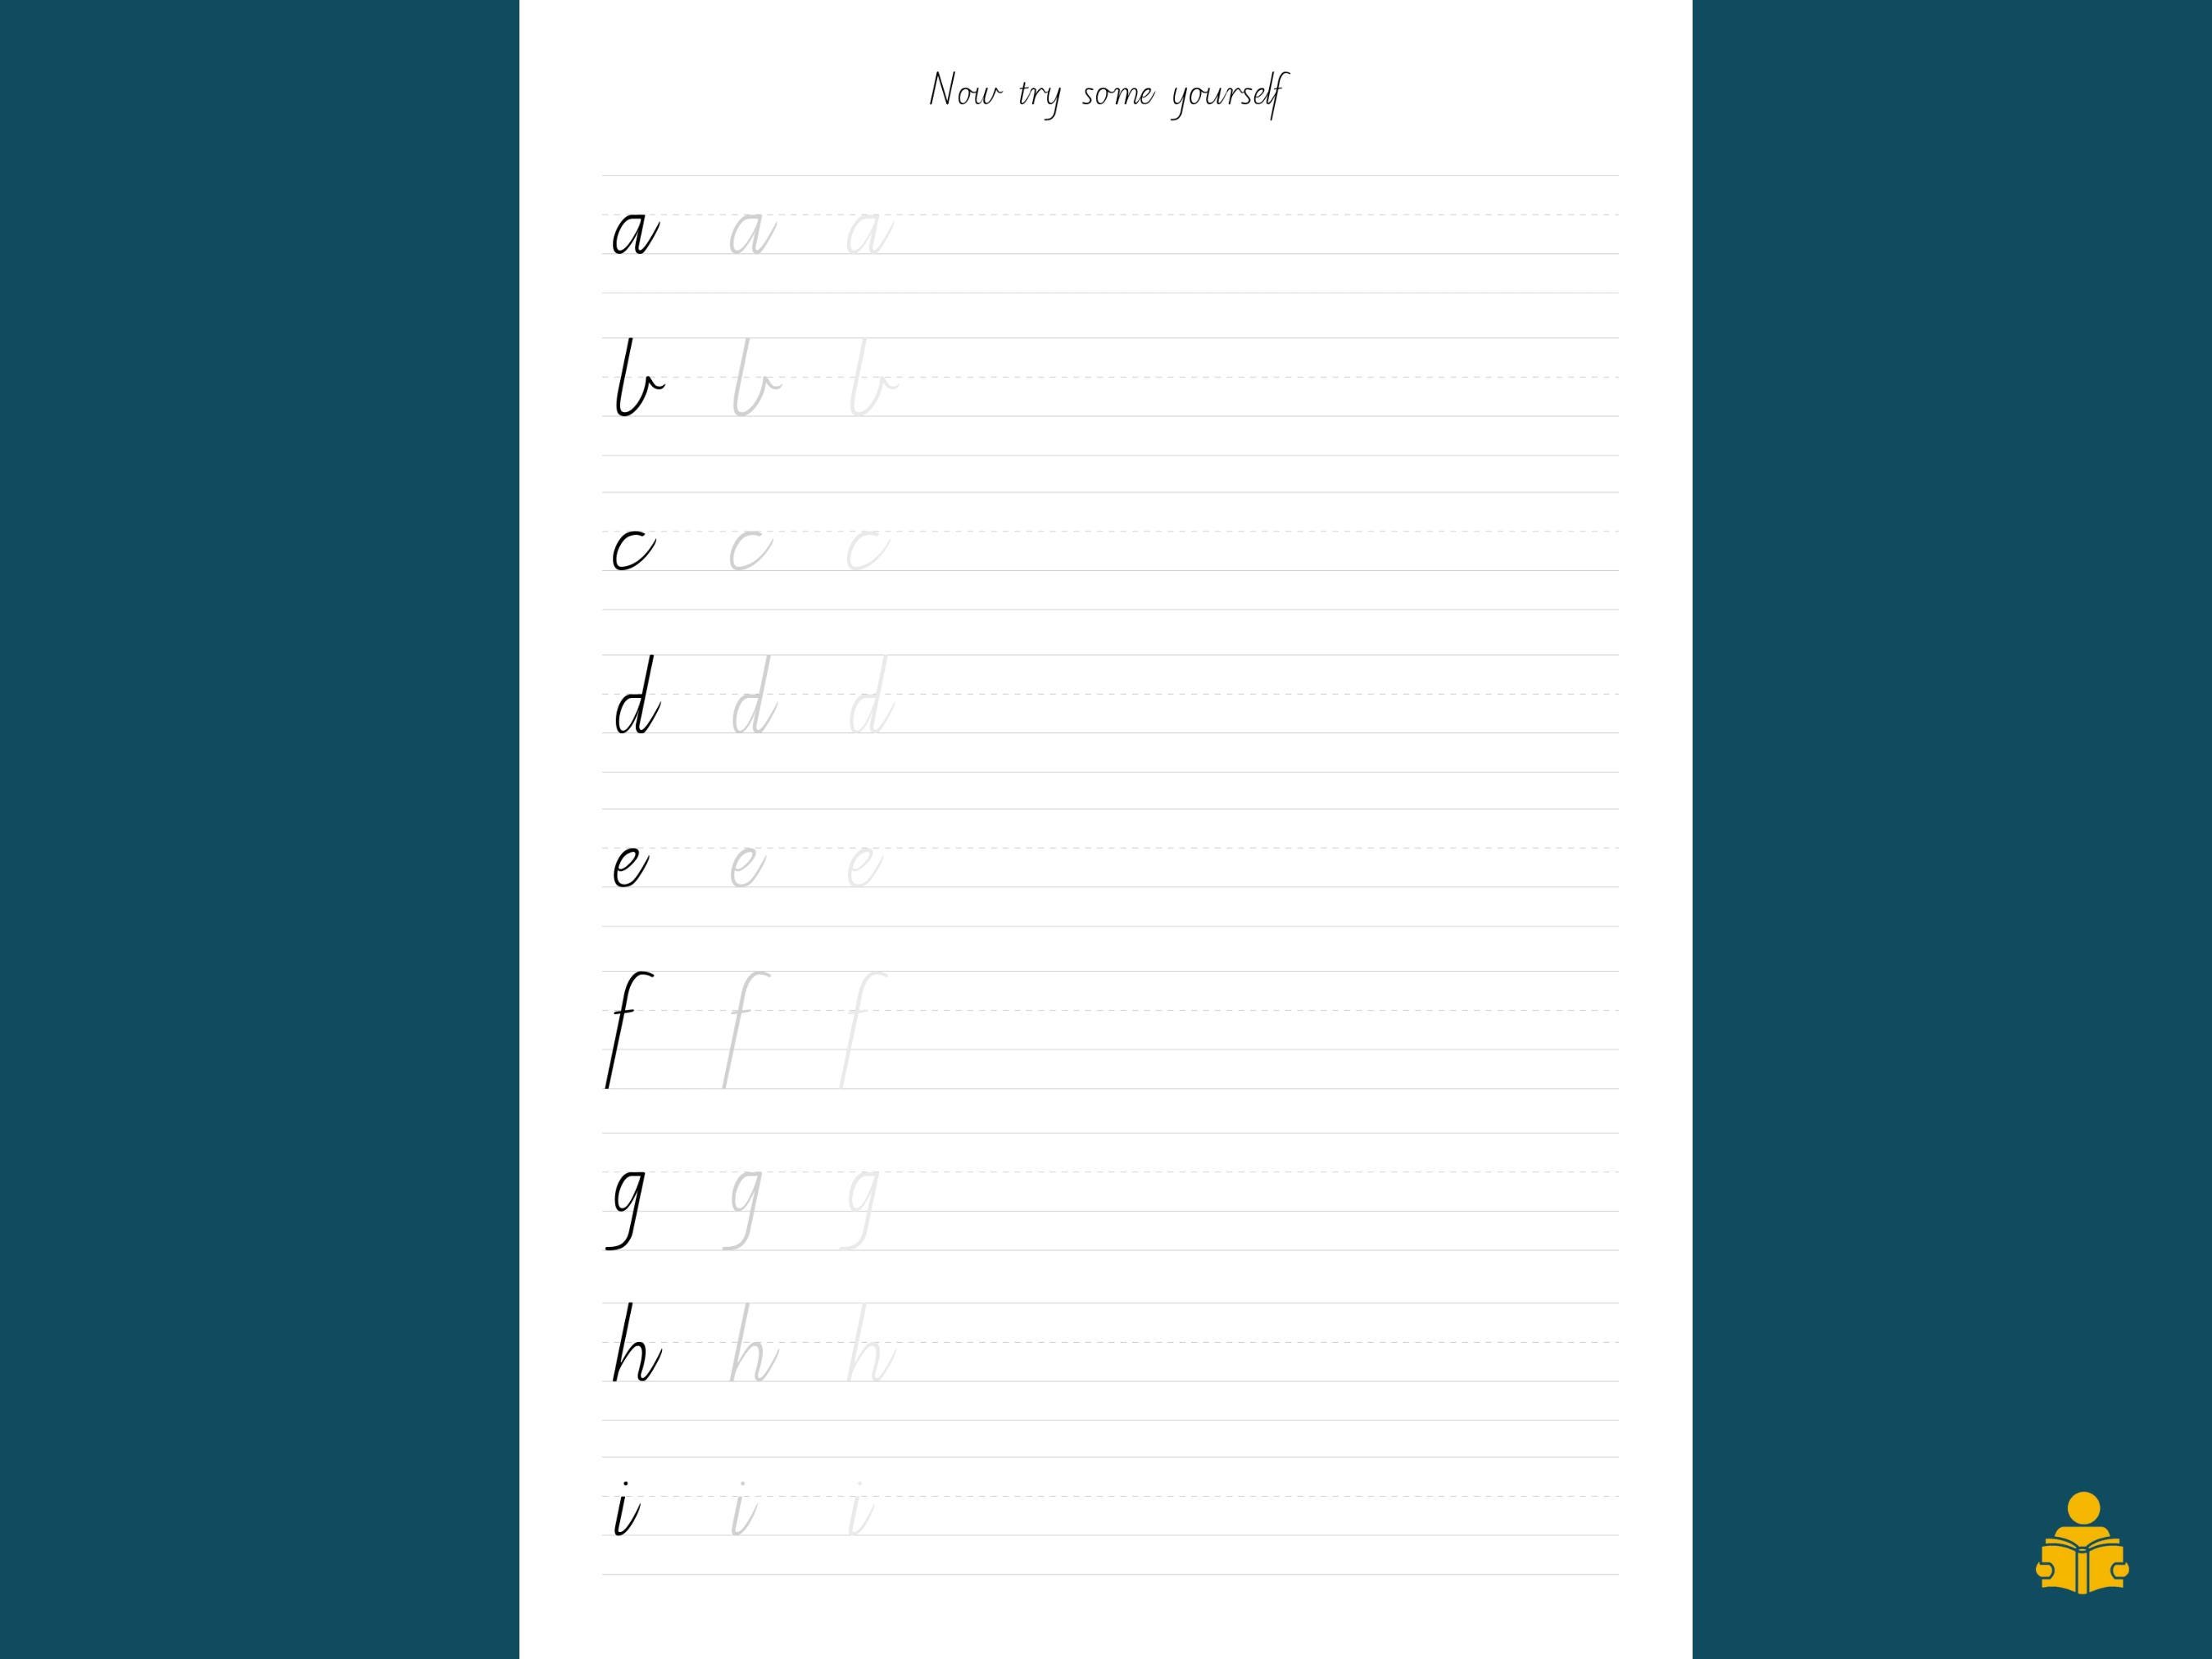 Now try some yourself
a a a
b b b
c c c
d d d
e e e
f f f
g g g
h h h
i i i